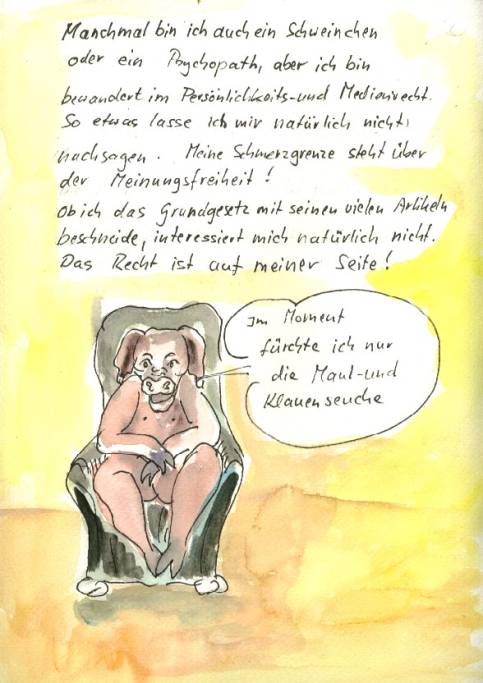 Manchmal bin ich auch ein Schweinchen
oder ein Psychopath, aber ich bin
bewandert im Persönlichkeits- und Medienrecht.
So etwas lasse ich mir natürlich nicht
nachsagen. Meine Schmerzgrenze steht über
der Meinungsfreiheit!
Ob ich das Grundgesetz mit seinen vielen Artikeln
beschneide, interessiert mich natürlich nicht.
Das Recht ist auf meiner Seite!
Im Moment
fürchte ich nur
die Maul- und
Klauenseuche